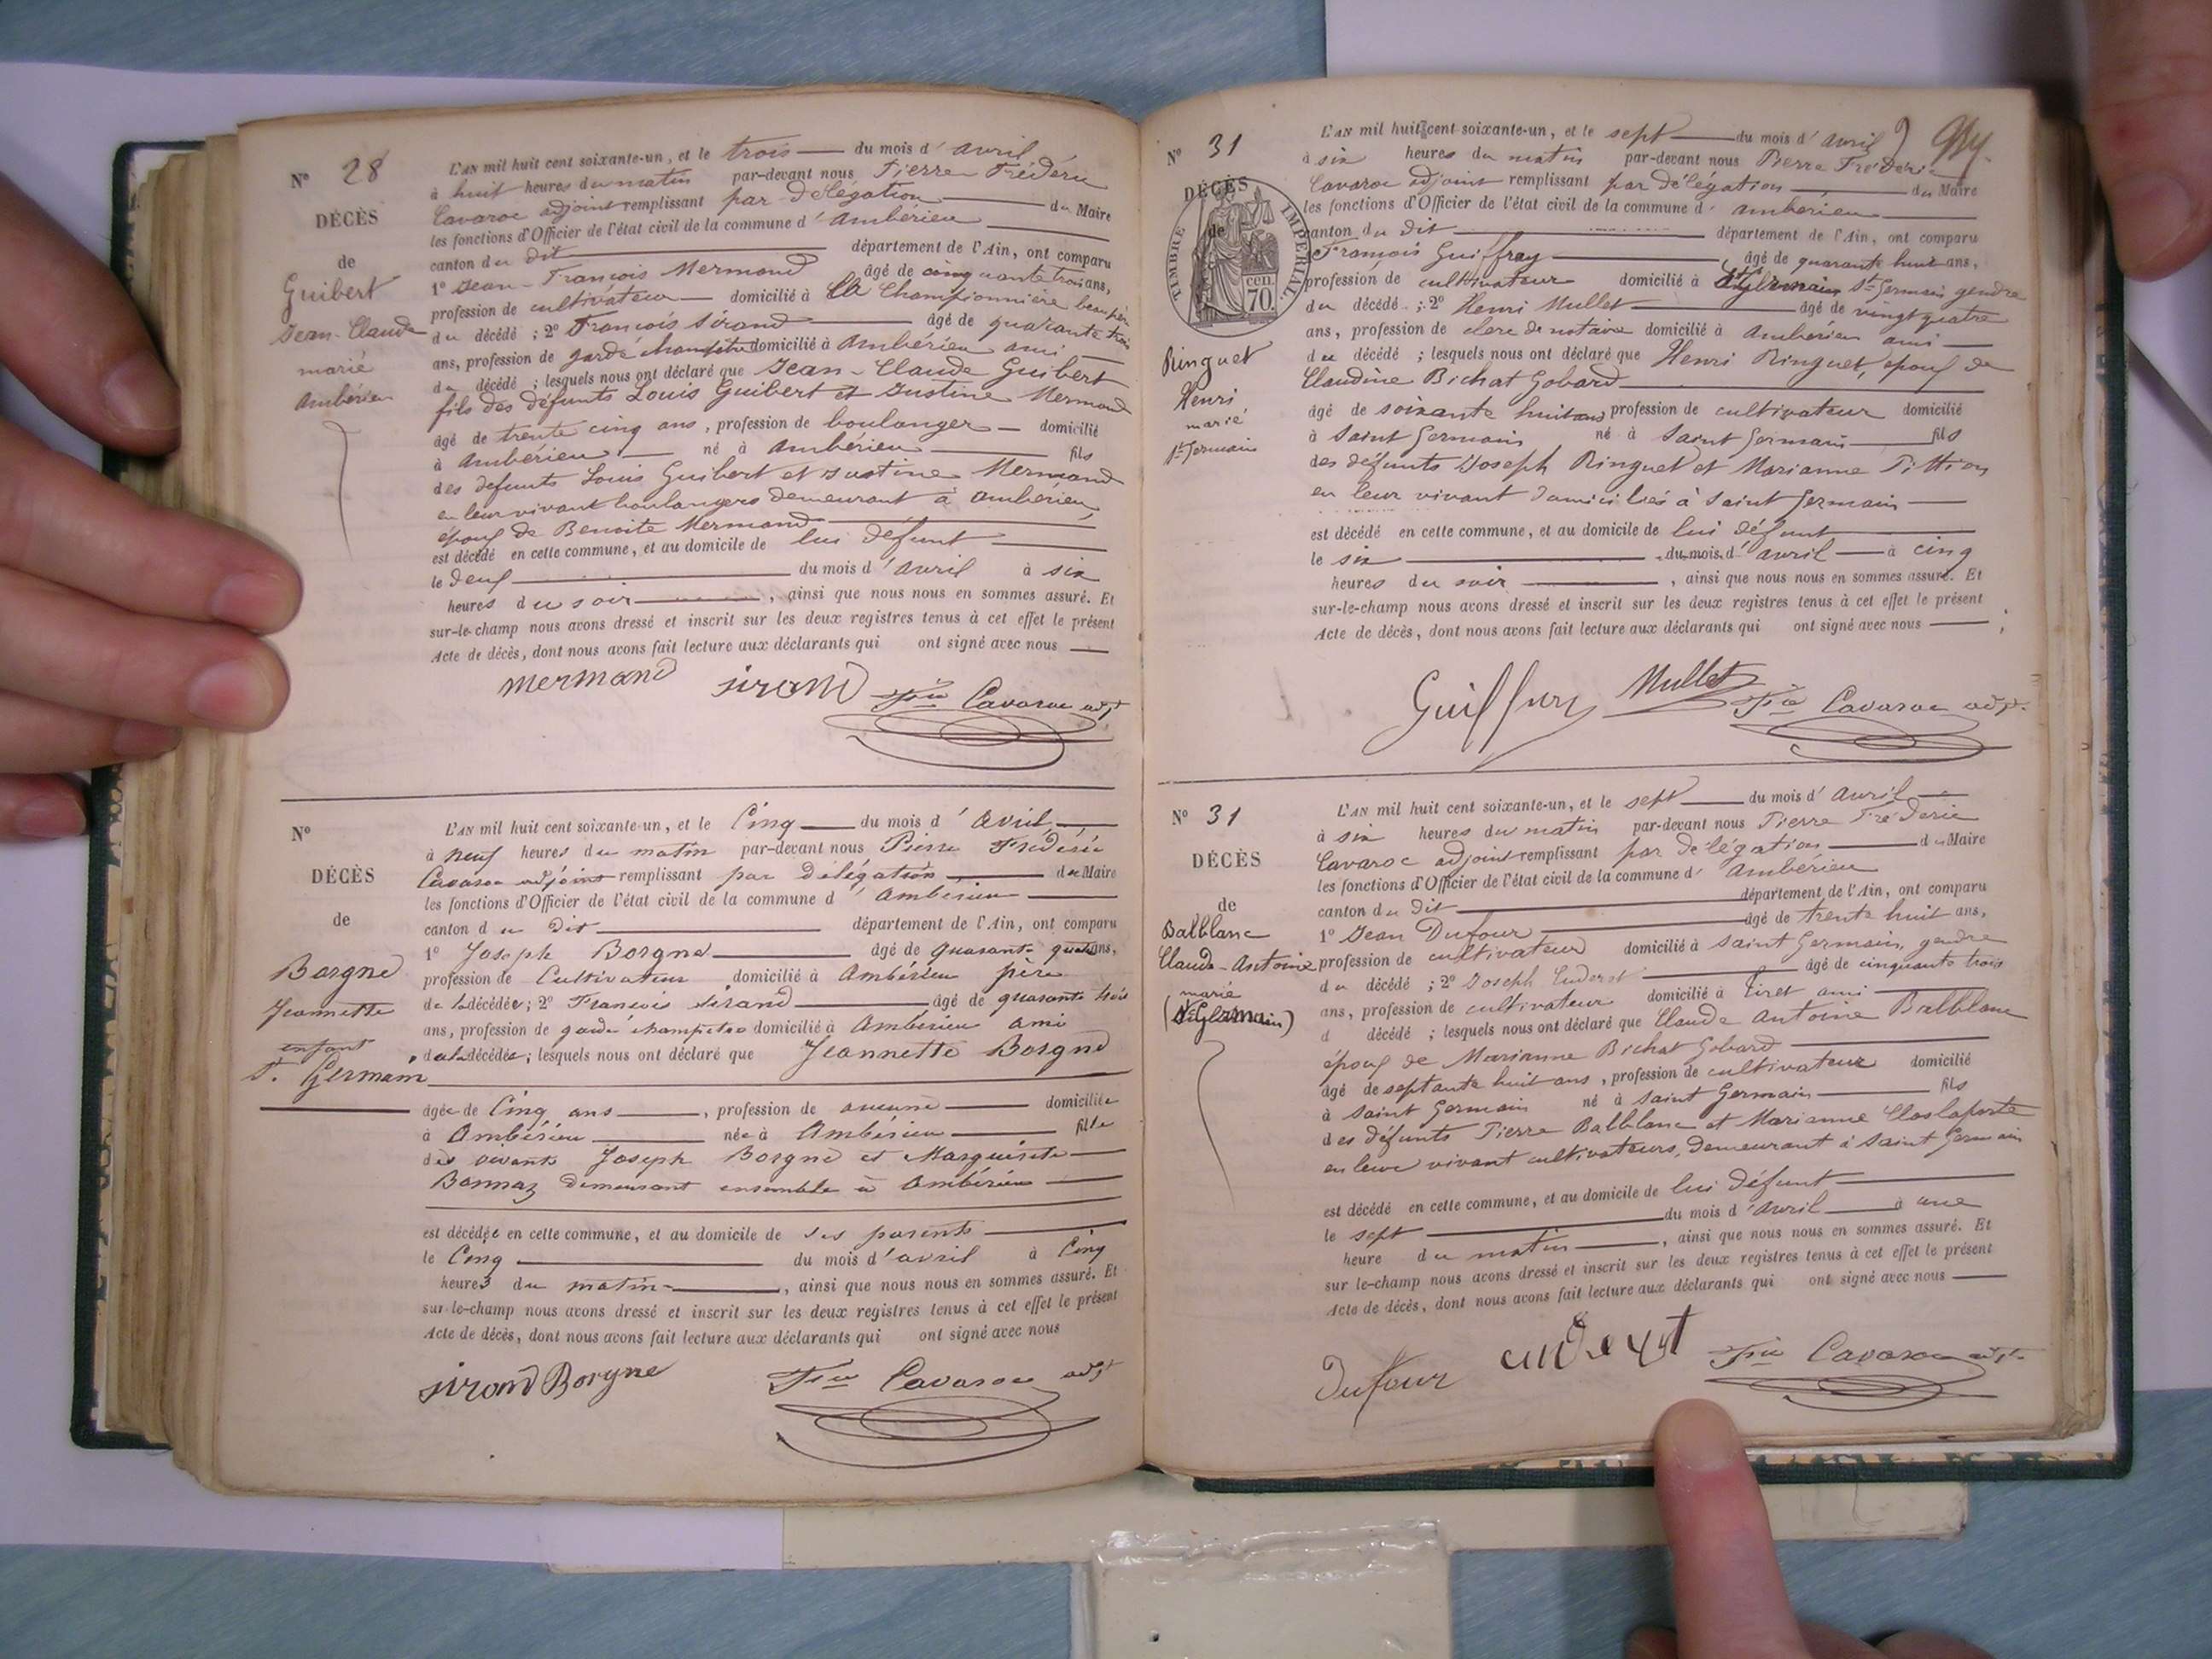 N° 28
DÉCÈS
de
Guibert
Jean-Claude
marié
Ambérieu
L'AN mil huit cent soixante-un, et le trois du mois d'avril
à huit heures du matin par-devant nous Pierre Frédéric
Cavaroc adjoint remplissant par délégation du Maire
les fonctions d'Officier de l'état civil de la commune d'Ambérieu
canton du dit département de l'Ain, ont comparu
1° Jean-François Mermand âgé de cinquante trois ans,
profession de cultivateur domicilié à la Championnière beau père
du décédé ; 2° François Sirand âgé de quarante trois
ans, profession de garde champêtre domicilié à Ambérieu ami
du décédé ; lesquels nous ont déclaré que Jean-Claude Guibert
fils des défunts Louis Guibert et Justine Mermand
âgé de trente cinq ans, profession de boulanger domicilié
à Ambérieu né à Ambérieu fils
des défunts Louis Guibert et Justine Mermand
en leur vivant boulangers demeurant à Ambérieu,
époux de Benoite Mermand
est décédé en cette commune, et au domicile de lui défunt
le deux du mois d'avril à six
heures du soir, ainsi que nous nous en sommes assuré. Et
sur-le-champ nous avons dressé et inscrit sur les deux registres tenus à cet effet le présent
Acte de décès, dont nous avons fait lecture aux déclarants qui ont signé avec nous
mermand sirand Fric Cavaroc adjt
N°
DÉCÈS
de
Borgne
Jeannette
enfant
St. Germain
L'AN mil huit cent soixante-un, et le Cinq du mois d'avril
à neuf heures du matin par-devant nous Pierre Frédéric
Cavaroc adjoint remplissant par délégation du Maire
les fonctions d'Officier de l'état civil de la commune d'Ambérieu
canton du dit département de l'Ain, ont comparu
1° Joseph Borgne âgé de quarante quatre ans,
profession de Cultivateur domicilié à Ambérieu père
de la décédée ; 2° François Sirand âgé de quarante trois
ans, profession de garde champêtre domicilié à Ambérieu ami
de la décédée ; lesquels nous ont déclaré que Jeannette Borgne
âgée de Cinq ans, profession de aucune domiciliée
à Ambérieu née à Ambérieu fille
des vivants Joseph Borgne et Marguerite
Bonnaz demeurant ensemble à Ambérieu
est décédée en cette commune, et au domicile de ses parents
le Cinq du mois d'avril à Cinq
heures du matin, ainsi que nous nous en sommes assuré. Et
sur-le-champ nous avons dressé et inscrit sur les deux registres tenus à cet effet le présent
Acte de décès, dont nous avons fait lecture aux déclarants qui ont signé avec nous
sirand Borgne Fric Cavaroc adjt
N° 31
DÉCÈS
de
TIMBRE IMPÉRIAL
70 cen.
Ringuet
Henri
marié
St Germain
L'AN mil huit cent soixante-un, et le sept du mois d'avril
à six heures du matin par-devant nous Pierre Frédéric
Cavaroc adjoint remplissant par délégation du Maire
les fonctions d'Officier de l'état civil de la commune d'Ambérieu
canton du dit département de l'Ain, ont comparu
François Guiffray âgé de quarante huit ans,
profession de cultivateur domicilié à St Germain gendre
du décédé ; 2° Henri Mullet âgé de vingt quatre
ans, profession de clerc de notaire domicilié à Ambérieu ami
du décédé ; lesquels nous ont déclaré que Henri Ringuet, époux de
Claudine Bichat Gobard
âgé de soixante huit ans profession de cultivateur domicilié
à Saint Germain né à Saint Germain fils
des défunts Joseph Ringuet et Marianne Tittion
en leur vivant domiciliés à Saint Germain
est décédé en cette commune, et au domicile de lui défunt
le six du mois d'avril à cinq
heures du soir, ainsi que nous nous en sommes assuré. Et
sur-le-champ nous avons dressé et inscrit sur les deux registres tenus à cet effet le présent
Acte de décès, dont nous avons fait lecture aux déclarants qui ont signé avec nous
Guiffray Mullet Fric Cavaroc adjt
N° 31
DÉCÈS
de
Balblanc
Claude-Antoine
marié
(St Germain)
L'AN mil huit cent soixante-un, et le sept du mois d'avril
à six heures du matin par-devant nous Pierre Frédéric
Cavaroc adjoint remplissant par délégation du Maire
les fonctions d'Officier de l'état civil de la commune d'Ambérieu
canton du dit département de l'Ain, ont comparu
1° Jean Dufour âgé de trente huit ans,
profession de cultivateur domicilié à Saint Germain, gendre
du décédé ; 2° Joseph Cuderet âgé de cinquante trois
ans, profession de cultivateur domicilié à Tiret ami
d décédé ; lesquels nous ont déclaré que Claude Antoine Balblanc
époux de Marianne Bichat Gobard
âgé de septante huit ans, profession de cultivateur domicilié
à Saint Germain né à Saint Germain fils
des défunts Pierre Balblanc et Marianne Claslaporte
en leur vivant cultivateurs, demeurant à Saint Germain
est décédé en cette commune, et au domicile de lui défunt
le sept du mois d'avril à une
heure du matin, ainsi que nous nous en sommes assuré. Et
sur le-champ nous avons dressé et inscrit sur les deux registres tenus à cet effet le présent
Acte de décès, dont nous avons fait lecture aux déclarants qui ont signé avec nous
Dufour Fric Cavaroc adjt